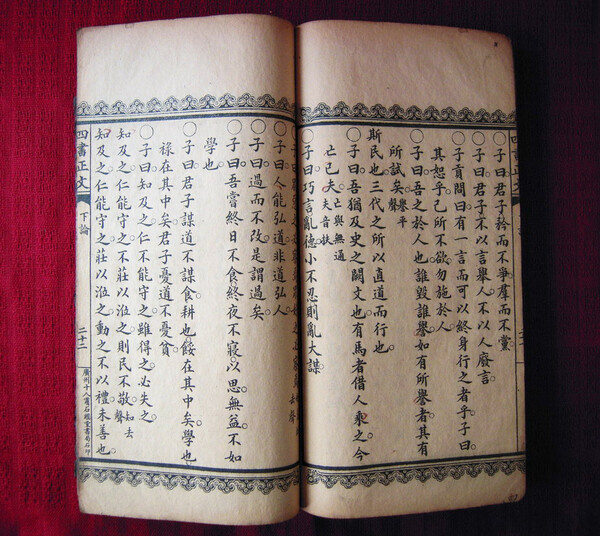 四書正文
○子曰君子矜而不爭。羣而不黨
○子曰君子不以言舉人。不以人廢言。
○子貢問曰。有一言而可以終身行之者乎。子曰
其恕乎。己所不欲。勿施於人
○子曰。吾之於人也。誰毀誰譽。如有所譽者。其有
所試矣。譽平聲
斯民也。三代之所以直道而行也。
○子曰。吾猶及史之闕文也。有馬者借人乘之。今
亡已夫。夫音扶 亡與無通
○子曰。巧言亂德。小不忍則亂大謀
○子曰。人能弘道。非道弘人
○子曰。過而不改。是謂過矣
○子曰。吾嘗終日不食。終夜不寢。以思。無益。不如
學也。
○子曰君子謀道不謀食。耕也餒在其中矣。學也
祿在其中矣。君子憂道不憂貧。
○子曰。知及之。仁不能守之。雖得之。必失之。
知及之。仁能守之。不莊以涖之。則民不敬。知去聲
知及之。仁能守之。莊以涖之。動之不以禮。未善也。
四書正文
下論
二十二
廣州十八甫石經堂書局石印